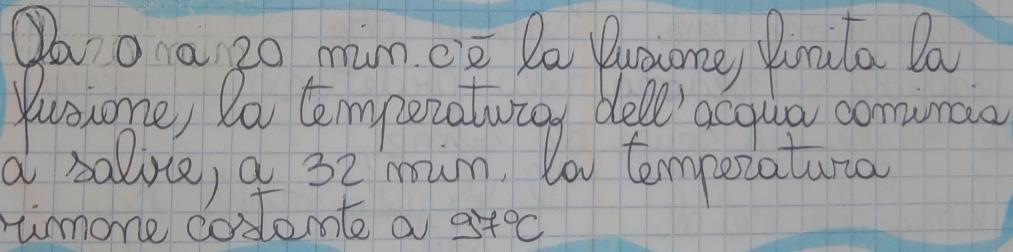 Da 0 a 20 min. c'è la fusione, finita la
fusione, la temperatura dell'acqua comincia
a salire, a 32 min. la temperatura
rimane costante a 97°C